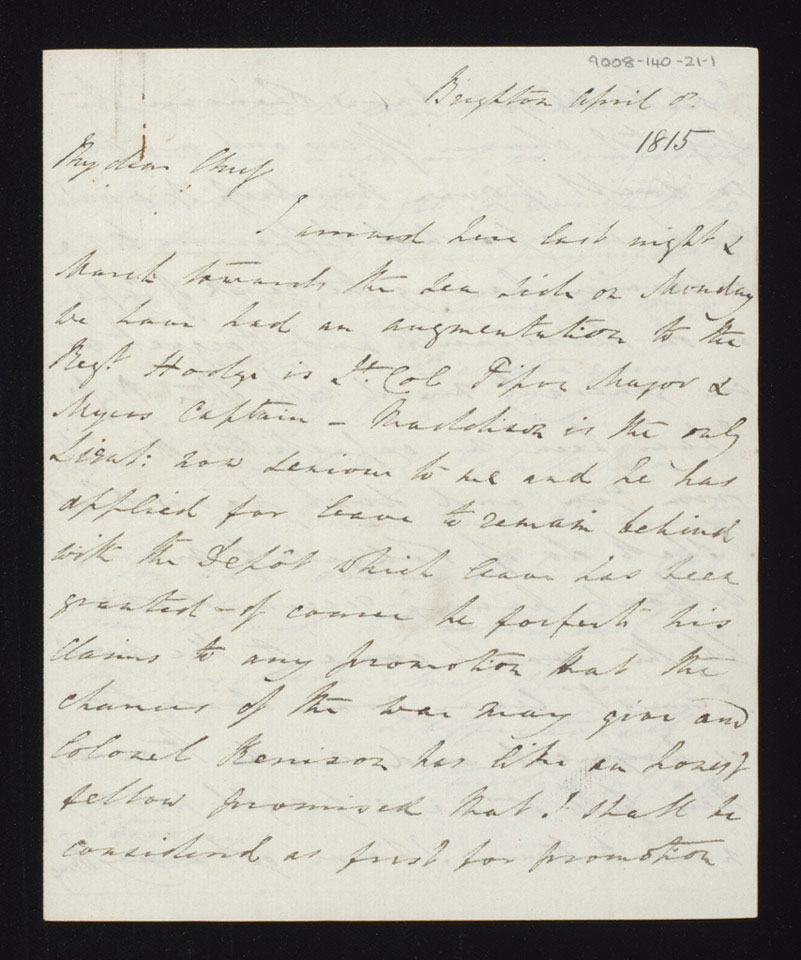 9008-140-21-1
Brighton April 8.
1815
My dear Chief
I arrived here last night &
March towards the Sea side on Monday
We have had an augmentation to the
Regt. Hodge is Lt. Col Major &
Myers Captain – Maddison is the only
Lieut: now seniour to me and he has
applied for leave to remain behind
with the Depôt which leave has been
granted – of course he forfeits his
claims to any promotion that the
chances of the war may give and
Colonel Kerrison has like an honest
fellow promised that I shall be
considered as first for promotion